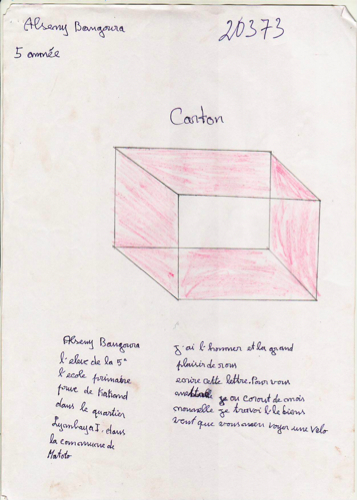 Alseny Bangoura
20373
5 année
Carton
Alseny Bangoura
l'eleve de la 5e
l'ecole primaire
prive de Katrand
dans le quartier
Lyambaya I. dans
la commune de
Matoto
J'ai l'honneur et la grand
plaisir de nous
ecrire cette lettre. Pour vous
je ou corout de mois
je travoi l le biens
vent que vous Velo